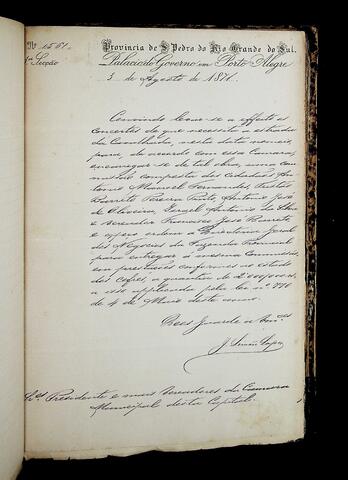 Nº 1551
Provincia de S. Pedro do Rio Grande do Sul.
1ª Secção
Palacio do Governo em Porto Alegre
3 de Agosto de 1871.
Convindo levar-se a effeito os
concertos de que necessita a estrada
da Cavalhada, nesta data nomeio,
para, de accordo com essa Camara,
encarregar-se de tal obra, uma com
missão composta dos cidadãos An
tonio Manoel Fernandes,
Barreto Pereira Pinto, Antonio José
de Oliveira, Israel Antonio da Silva
e vereador Francisco José Barreto
e ordem a Directoria Geral
dos Negocios da Fazenda Provincial
para entregar á mesma Commissão,
em prestações conforme o estado
dos cofres, a quantia de 2:000$000 rs
a isso applicada pela lei nº 776
de 4 de Maio deste anno.
Deos Guarde a Vmces
Snres Presidente e mais Vereadores da Camara
Municipal desta Capital.